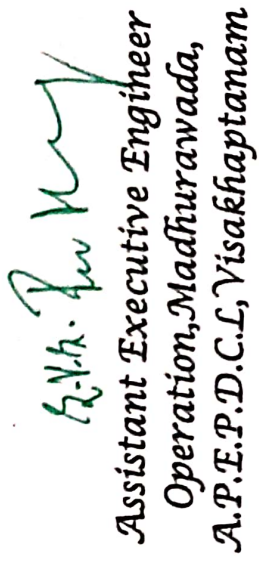 Assistant Executive Engineer
Operation,Madhurawada,
A.P.E.P.D.C.L,Visakhaptanam